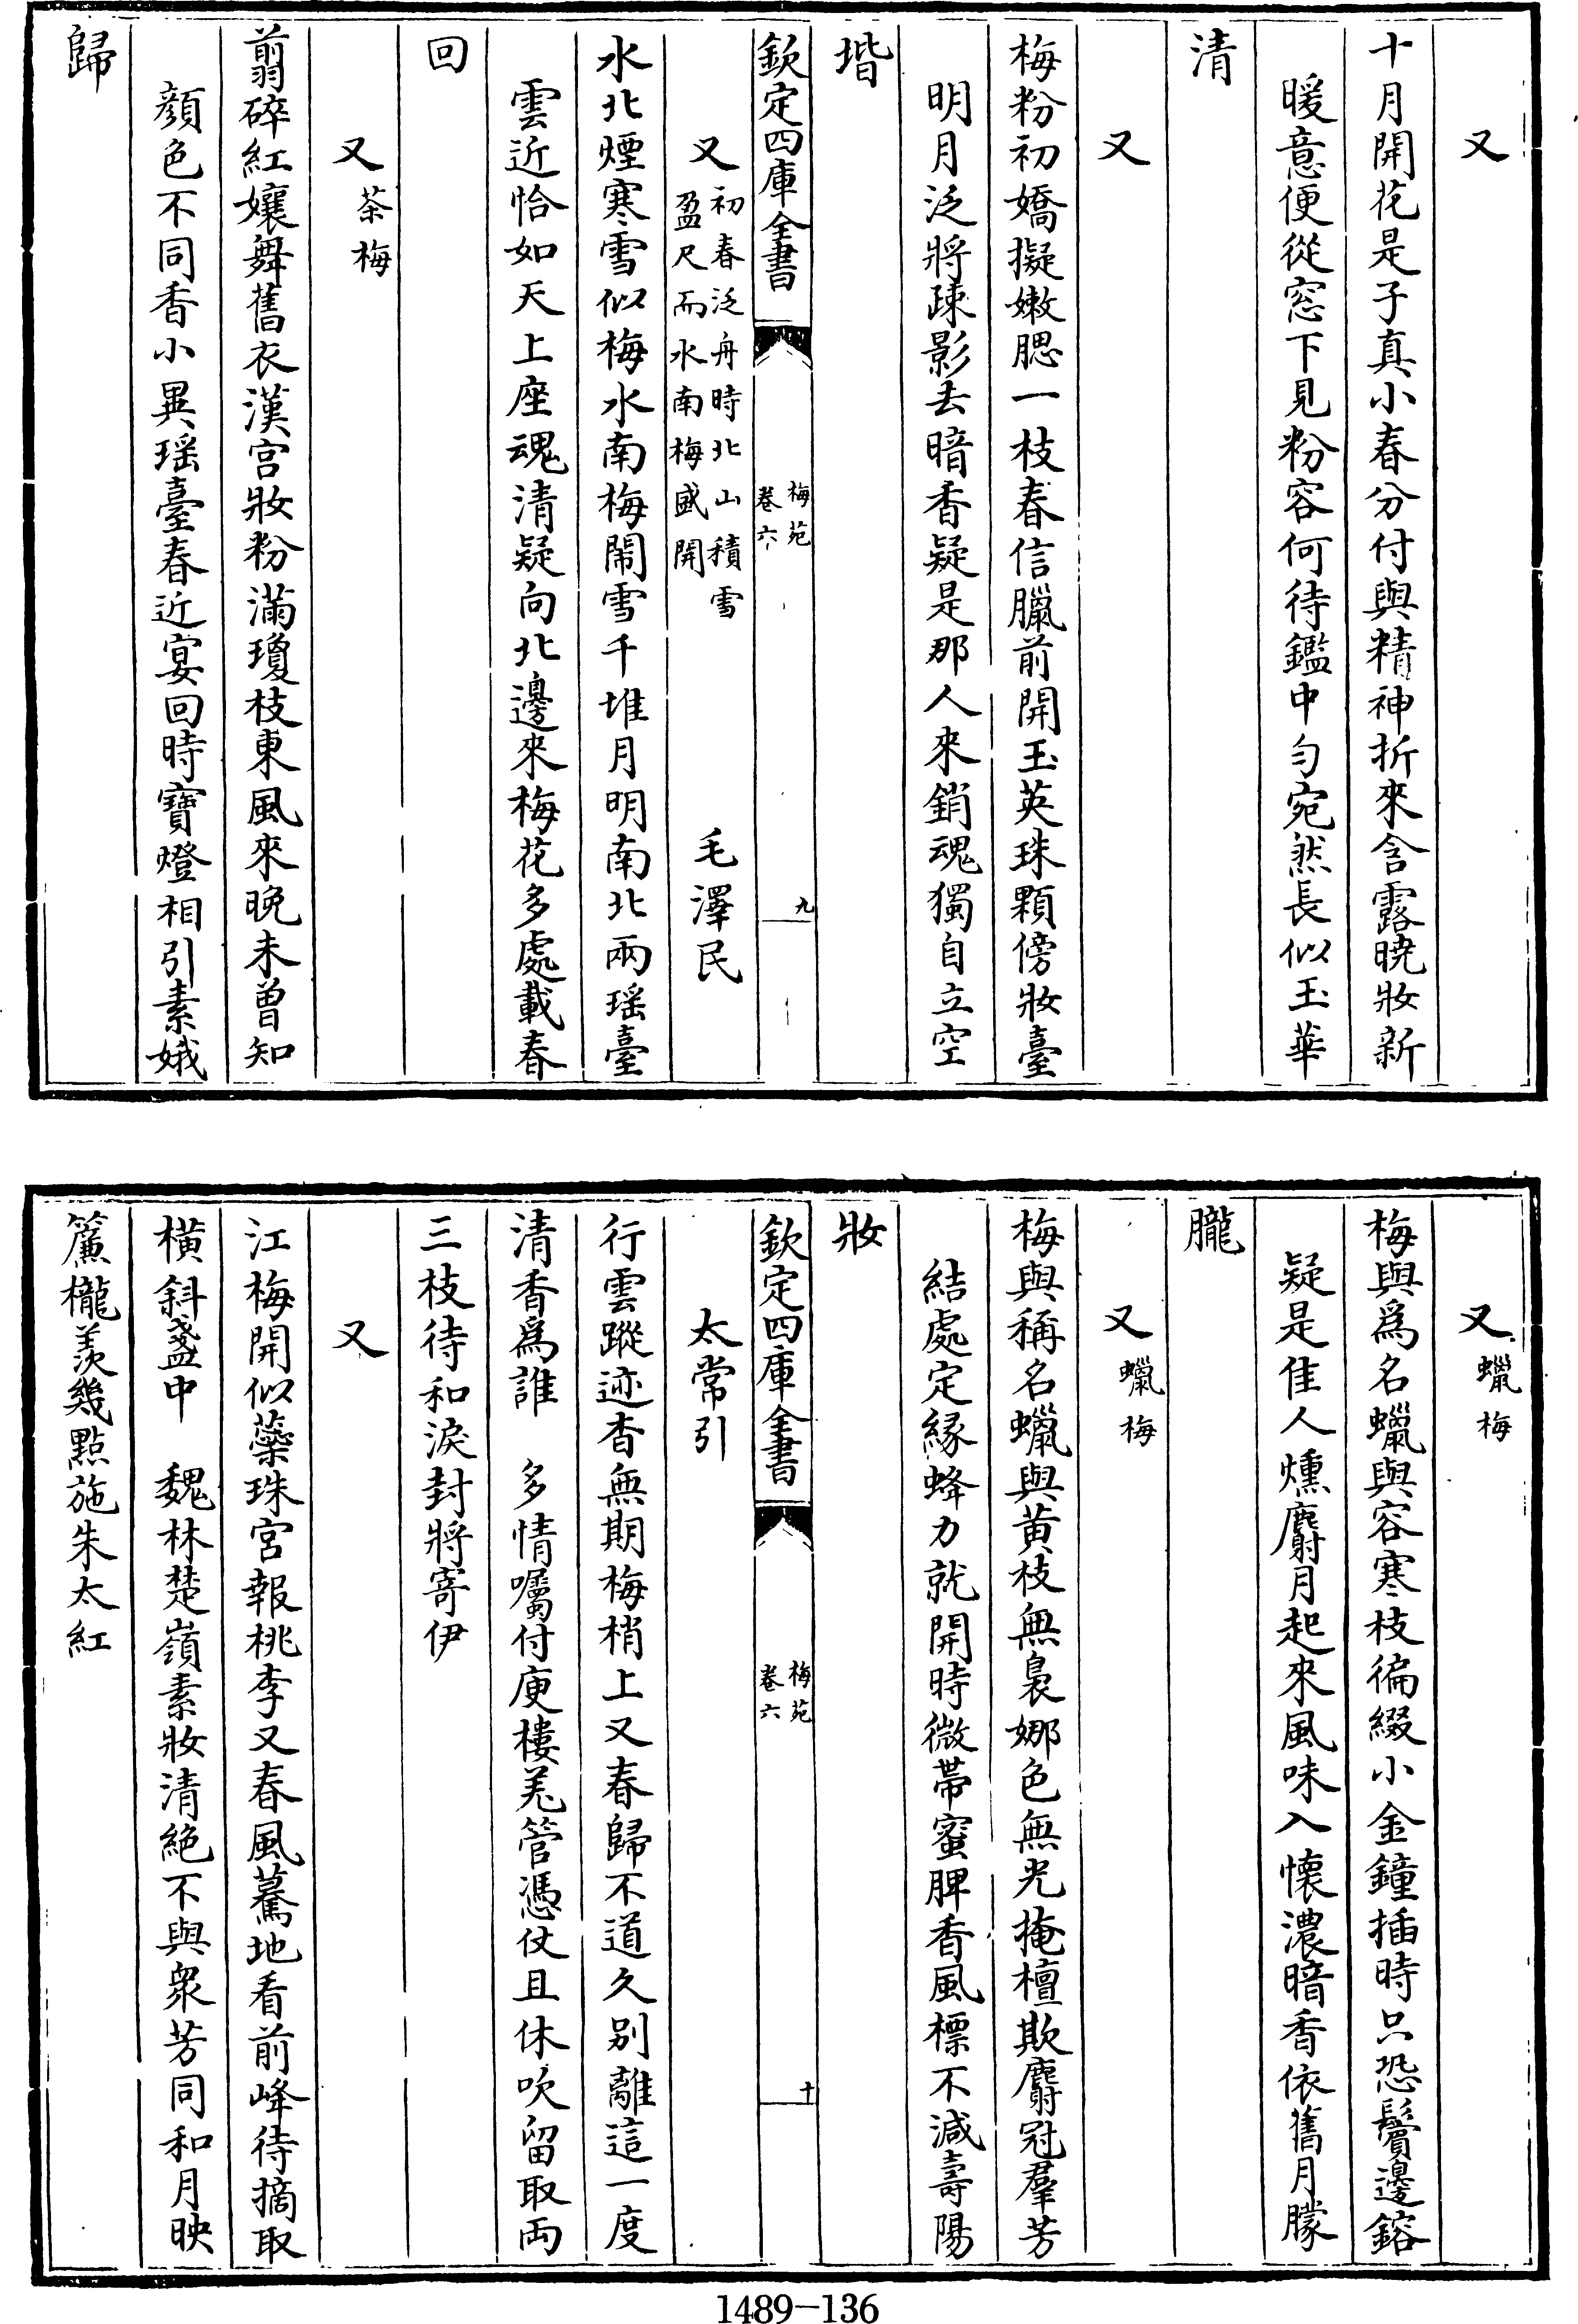 又
十月開花是子真小春分付與精神折來含露曉妝新
暖意便從窓下見粉容何待鑑中勻宛然長似玉華
清
又
梅粉初嬌擬嫩腮一枝春信臘前開玉英珠顆傍妝臺
明月泛將疎影去暗香疑是那人來銷魂獨自立空
堦
欽定四庫全書
梅苑
卷六
九
又初春泛舟時北山積雪
盈尺而水南梅盛開
毛澤民
水北煙寒雪似梅水南梅鬧雪千堆月明南北兩瑶臺
雲近恰如天上座魂清疑向北邊來梅花多處載春
回
又茶梅
翦碎紅孃舞舊衣漢宫妝粉滿瓊枝東風來晚未曾知
顔色不同香小異瑶臺春近宴回時寶燈相引素娥
歸
又蠟梅
梅與為名蠟與容寒枝徧綴小金鐘插時只恐鬢邊鎔
疑是佳人燻麝月起來風味入懐濃暗香依舊月朦
朧
又蠟梅
梅與稱名蠟與黄枝無裊娜色無光掩檀欺麝冠羣芳
結處定緣蜂力就開時微帯蜜脾香風標不減壽陽
妝
欽定四庫全書
梅苑
卷六
十
太常引
行雲蹤迹杳無期梅梢上又春歸不道久别離這一度
清香為誰　多情囑付庾樓羌管憑仗且休吹留取兩
三枝待和淚封將寄伊
又
江梅開似蘂珠宫報桃李又春風驀地看前峰待摘取
橫斜盞中　魏林楚嶺素妝清絶不與衆芳同和月映
簾櫳羡幾點施朱太紅
1489-136